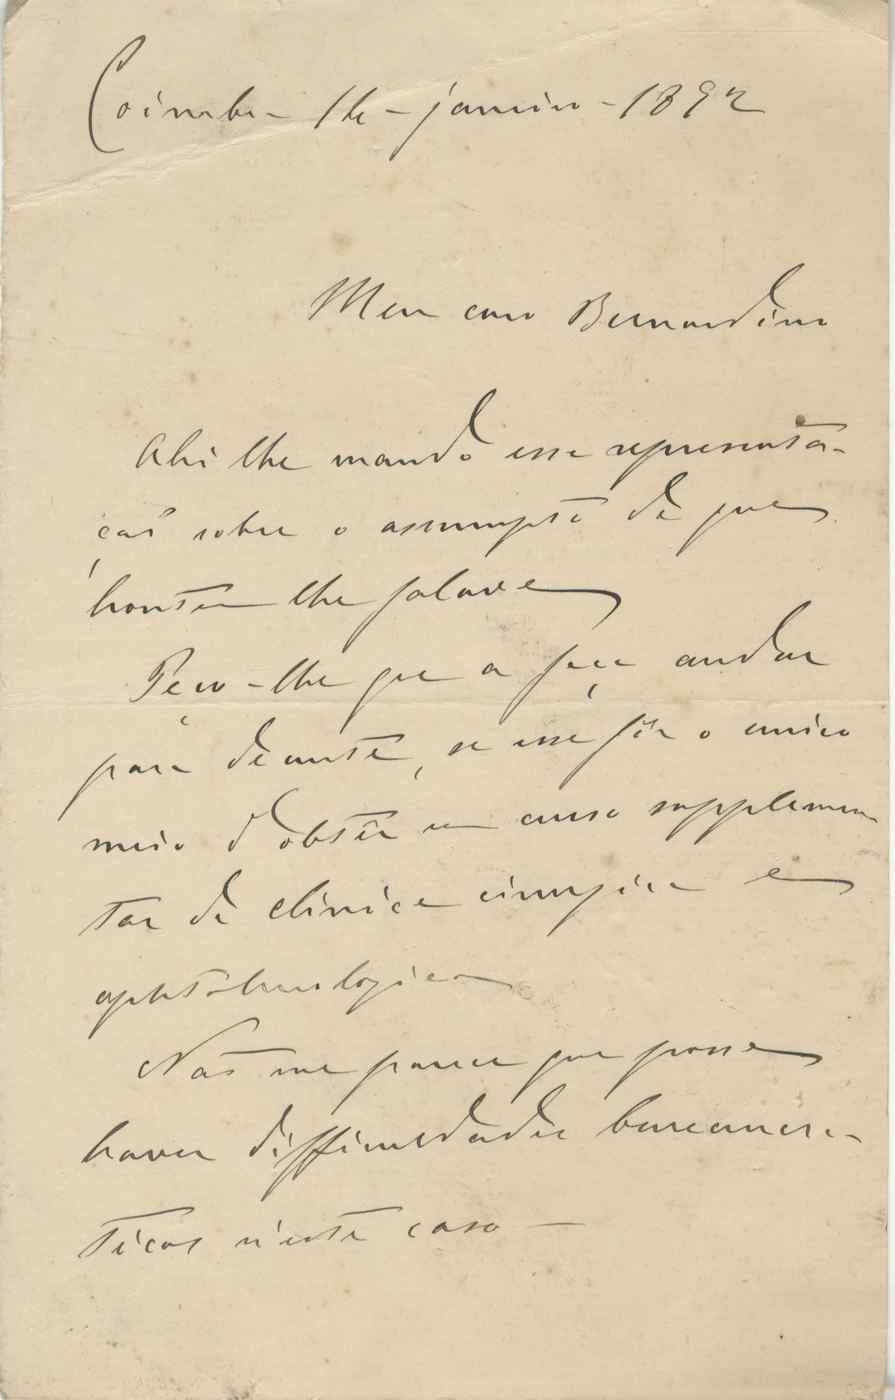 Coimbra 14 - janeiro - 1892
Meu caro Bernardino
Ahi lhe mando essa representa-
ção sobre o assumpto de que
hontem lhe falava
Peço-lhe que a faça andar
para deante, se esse fôr o unico
meio d'obter um curso supplemen-
tar de clinica cirurgica e
ophtalmologica
Não me parece que possa
haver difficuldades burocra-
ticas n'este caso —